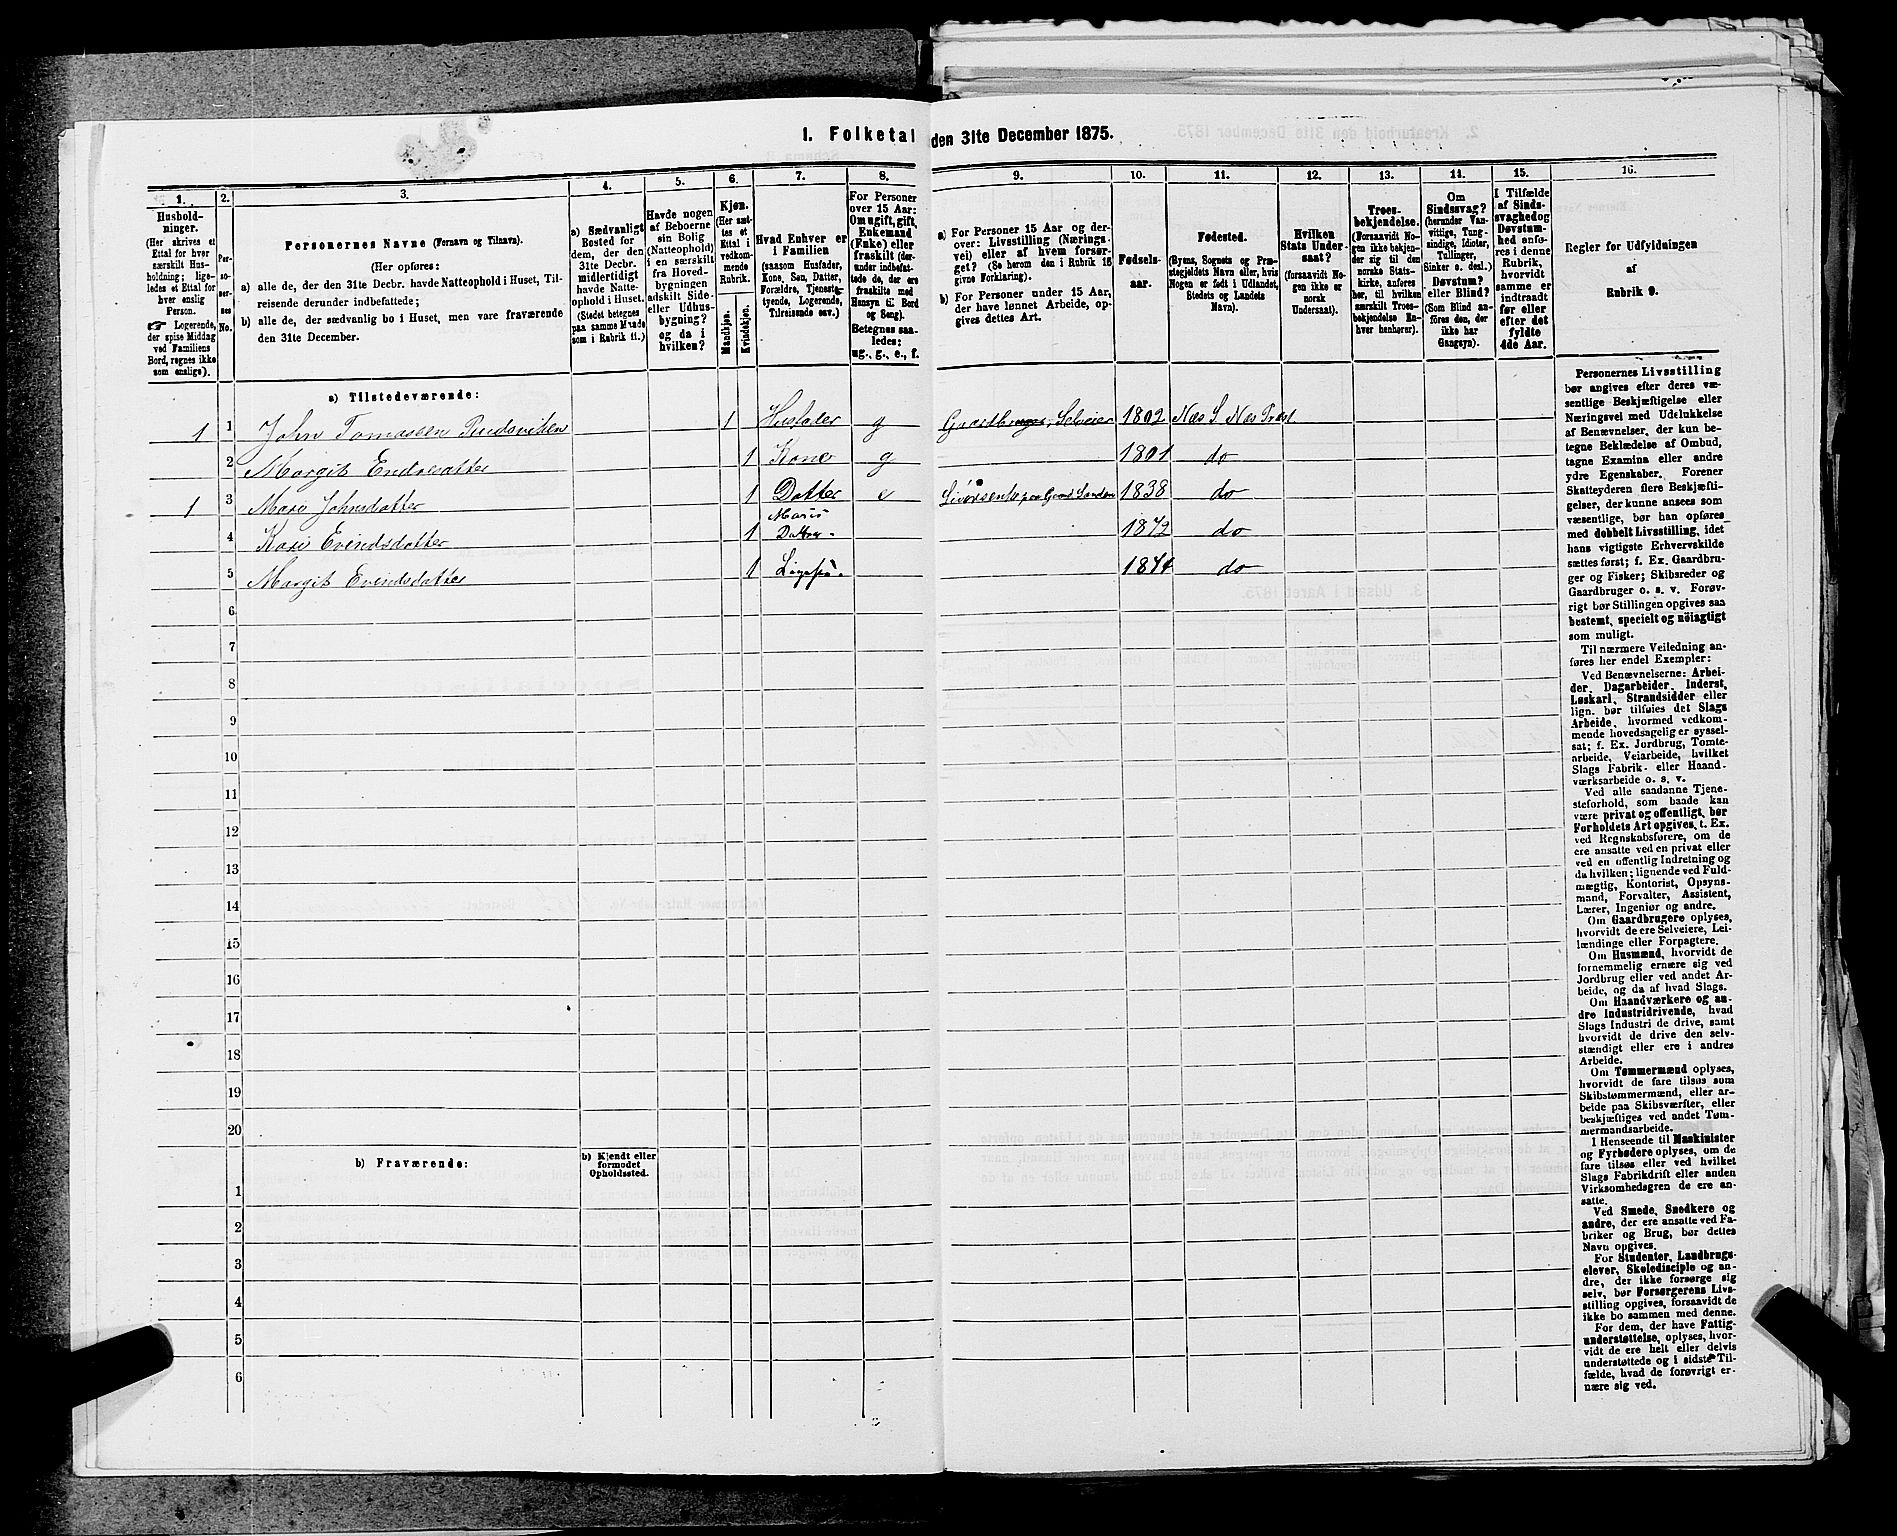 1. Folketal den 31te December 1875.
1. 2. 3. 4. 5. 6. 7. 8. 9. 10. 11. 12. 13. 14. 15. 16.
Hushold-
ninger.
(Her skrives et
Ettal for hver
særskilt Hus-
holdning; lige-
ledes et Ettal for
hver enslig
Person.
☞ Logerende,
der spise Middag
ved Familiens
Bord, regnes ikke
som enslige).
Per-
so-
ner-
nes
No.
Personernes Navne (Fornavn og Tilnavn).
(Her opføres:
a) alle de, der den 31te Decbr. havde Natteophold i Huset, Til-
reisende derunder indbefattede;
b) alle de, der sædvanlig bo i Huset, men vare fraværende
den 31te December.
a) Sædvanligt
Bosted for
dem, der den
31te Decbr.
midlertidigt
havde Natte-
ophold i Huset.
(Stedet betegnes
paa samme Maade
som i Rubrik 11.)
Havde nogen
af Beboerne
sin Bolig
(Natteophold)
i en særskilt
fra Hoved-
bygningen
adskilt Side-
eller Udhus-
bygning?
og da i
hvilken?
Kjøn.
(Her sæt-
tes et
Ettal i
vedkom-
mende
Rubrik.
Mandkjøn.
Kvindekjøn.
Hvad Enhver er
i Familien
(saasom Husfader,
Kone, Søn, Datter,
Forældre, Tjeneste-
tyende, Logerende,
Tilreisende osv.)
For Personer
over 15 Aar:
Om ugift, gift,
Enkemand
(Enke) eller
fraskilt (der-
under indbefat-
tede de, der ere
fraskilte med
Hensyn til Bord
og Seng).
Betegnes saa-
ledes:
ug., g., e., f.
a) For Personer 15 Aar og der-
over: Livsstilling (Nærings-
vei) eller af hvem forsør-
get? (Se herom den i Rubrik 16
givne Forklaring).
b) For Personer under 15 Aar,
der have lønnet Arbeide, op-
gives dettes Art.
Fødsels-
aar.
Fødested.
(Byens, Sognets og Præ-
stegjeldets Navn eller, hvis
Nogen er født i Udlandet,
Stedets og Landets
Navn).
Hvilken
Stats Under-
saat?
(forsaavidt No-
gen ikke er
norsk
Undersaat).
Troes-
bekjendelse.
(Forsaavidt No-
gen ikke beken-
der sig til den
norske Stats-
kirke, anføres
her, til hvilken
særskilt Troes-
bekjendelse En-
hver henhører).
Om
Sindssvag?
(herunder Van-
vittige, Tung-
sindige, Idioter,
Tullinger,
Sinker o. desl.)
Døvstum?
eller Blind?
(Som Blind an-
føres den, der
ikke har
Gangsyn).
I Tilfælde
af Sinds-
svaghed og
Døvstum-
hed anfø-
res i denne
Rubrik,
hvorvidt
samme er
indtraadt
før eller
efter det
fyldte
4de Aar.
Regler for Udfyldningen
af
Rubrik 9.
a) Tilstedeværende:
1 1 John Tomassen Rudsviken 1 Husfader g Gaardbruger, Selveier 1802 Næs S. Næs Præst.
2 Margit Endresdatter 1 Kone g 1801 do
1 3 Mari Johnsdatter 1 Datter e 1838 do
4 Kari Evindsdatter 1 Maris Datter 1872 do
5 Margit Evindsdatter 1 Ligesaa 1874 do
6
7
8
9
10
11
12
13
14
15
16
17
18
19
20
b) Fraværende:
b) Kjendt eller
formodet
Opholdssted.
1
2
3
4
5
6
Personernes Livsstilling
bør angives efter deres væ-
sentlige Beskjæftigelse eller
Næringsvei med Udelukkelse
af Benævnelser, der kun be-
tegne Beklædelse af Ombud,
tagne Examina eller andre
ydre Egenskaber. Forener
Skatteyderen flere Beskjæfti-
gelser, der kunne ansees som
væsentlige, bør han opføres
med dobbelt Livsstilling, idet
hans vigtigste Erhvervskilde
sættes først; f. Ex. Gaardbru-
ger og Fisker; Skibsreder og
Gaardbruger o. s. v. Forøv-
rigt bør Stillingen opgives saa
bestemt, specielt og nöiagtigt
som muligt.
Til nærmere Veiledning an-
føres her endel Exempler:
Ved Benævnelserne: Arbei-
der, Dagarbeider, Inderst,
Løskarl, Strandsidder eller
lign. bør tilføies det Slags
Arbeide, hvormed vedkom-
mende hovedsagelig er syssel-
sat; f. Ex. Jordbrug, Tomte-
arbeide, Veiarbeide, hvilket
Slags Fabrik- eller Haand-
værksarbeide o. s. v.
Ved alle saadanne Tjene-
steforhold, som baade kan
være privat og offentligt, bør
Forholdets Art opgives, t. Ex.
ved Regnskabsførere, om de
ere ansatte ved en privat eller
ved en offentlig Indretning og
da hvilken; lignende ved Fuld-
mægtig, Kontorist, Opsyns-
mand, Forvalter, Assistent,
Lærer, Ingeniør og andre.
Om Gaardbrugere oplyses,
hvorvidt de ere Selveiere, Lei-
lændinge eller Forpagtere.
Om Husmænd, hvorvidt de
fornemmelig ernære sig ved
Jordbrug eller ved andet Ar-
beide, og da af hvad Slags.
Om Haandværkere og an-
dre Industridrivende, hvad
Slags Industri de drive, samt
hvorvidt de drive den selv-
stændigt eller ere i andres
Arbeide.
Om Tømmermænd oplyses,
hvorvidt de fare tilsøs som
Skibstømmermænd, eller ar-
beide paa Skibsværfter, eller
beskjæftiges ved andet Tøm-
mermandsarbeide.
I Henseende til Maskinister
og Fyrbødere oplyses, om de
fare tilsøs eller ved hvilket
Slags Fabrikdrift eller anden
Virksomhedsgren de ere an-
satte.
Ved Smede, Snedkere og
andre, der ere ansatte ved Fa-
briker og Brug, bør dettes
Navn opgives.
For Studenter, Landbrugs-
elever, Skoledisciple og an-
dre, der ikke forsørge sig
selv, bør Forsørgerens Livs-
stilling opgives, forsaavidt de
ikke bo sammen med denne.
For dem, der have Fattig-
understøttelse, oplyses, hvor-
vidt de ere helt eller delvis
understøttede og i sidste Til-
fælde, hvad de forøvrigt er-
nære sig ved.